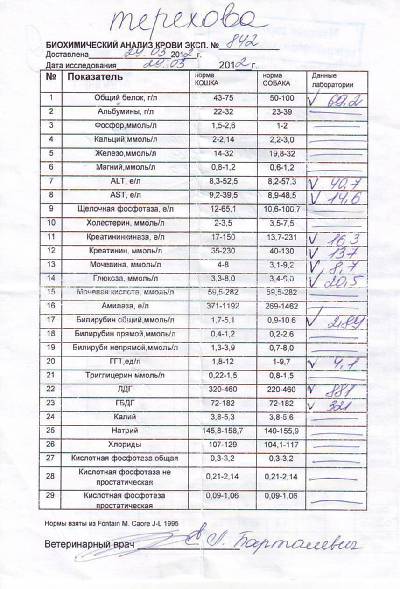 Терехова
БИОХИМИЧЕСКИЙ АНАЛИЗ КРОВИ ЭКСП. № 842
Доставлена 29.03 2012 г.
Дата исследования 29.03 2012 г.
№ Показатель норма КОШКА норма СОБАКА Данные лаборатории
1 Общий белок, г/л 43-75 50-100 √ 69.2
2 Альбумины, г/л 22-32 23-39
3 Фосфор,ммоль/л 1,5-2,6 1-2
4 Кальций,ммоль/л 2-2,14 2,2-3,0
5 Железо,ммоль/л 14-32 19,8-32
6 Магний,ммоль/л 0,8-1,2 0,6-1,2
7 ALT, е/л 8,3-52,5 8,2-57,3 √ 40,7
8 AST, е/л 9,2-39,5 8,9-48,5 √ 14,6
9 Щелочная фосфотаза, е/л 12-65,1 10,6-100,7
10 Холестерин, ммоль/л 2-3,5 3,5-7,5
11 Креатининкиназа, е/л 17-150 13,7-231 √ 16,3
12 Креатинин, ммоль/л 35-230 40-130 √ 137
13 Мочевина, ммоль/л 4-8 3,1-9,2 √ 8,7
14 Глюкоза, ммоль/л 3,3-8,0 3,4-6,0 √ 20,5
15 Мочевая кислота, ммоль/л 59,5-282 59,5-282
16 Амилаза, е/л 371-1192 269-1462
17 Билирубин общий,ммоль/л 1,7-5,1 0,9-10,6 √ 2,89
18 Билирубин прямой,ммоль/л 0,4-1,2 0,2-2,6
19 Билируби непрямой,ммоль/л 1,3-3,9 0,7-8,0
20 ГГТ,ед/л 1,8-12 1-9,7 √ 4,1
21 Триглицерин ммоль/л 0,22-1,5 0,8-1,5
22 ЛДГ 320-460 220-460 √ 881
23 ГБДГ 72-182 72-182 √ 321
24 Калий 3,8-5,3 3,8-5,6
25 Натрий 145,8-158,7 140-155,9
26 Хлориды 107-129 104,1-117
27 Кислотная фосфотаза общая 0,3-3,2 0,3-3,2
28 Кислотная фосфотаза не простатическая 0,21-2,14 0,21-2,14
29 Кислотная фосфотеза простатическая 0,09-1,06 0,09-1,06
Нормы взяты из Fontain M. Caore J-L 1995
Ветеринарный врач Барталевич